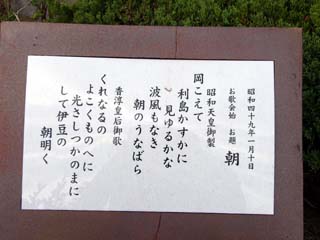 昭和四十九年一月十日
お歌会始 お題 朝
昭和天皇御製
岡こえて
利島かすかに
見ゆるかな
波風もなき
朝のうなばら
香淳皇后御歌
くれなゐの
よこくものへに
光さしつかのまに
して伊豆の
朝明く